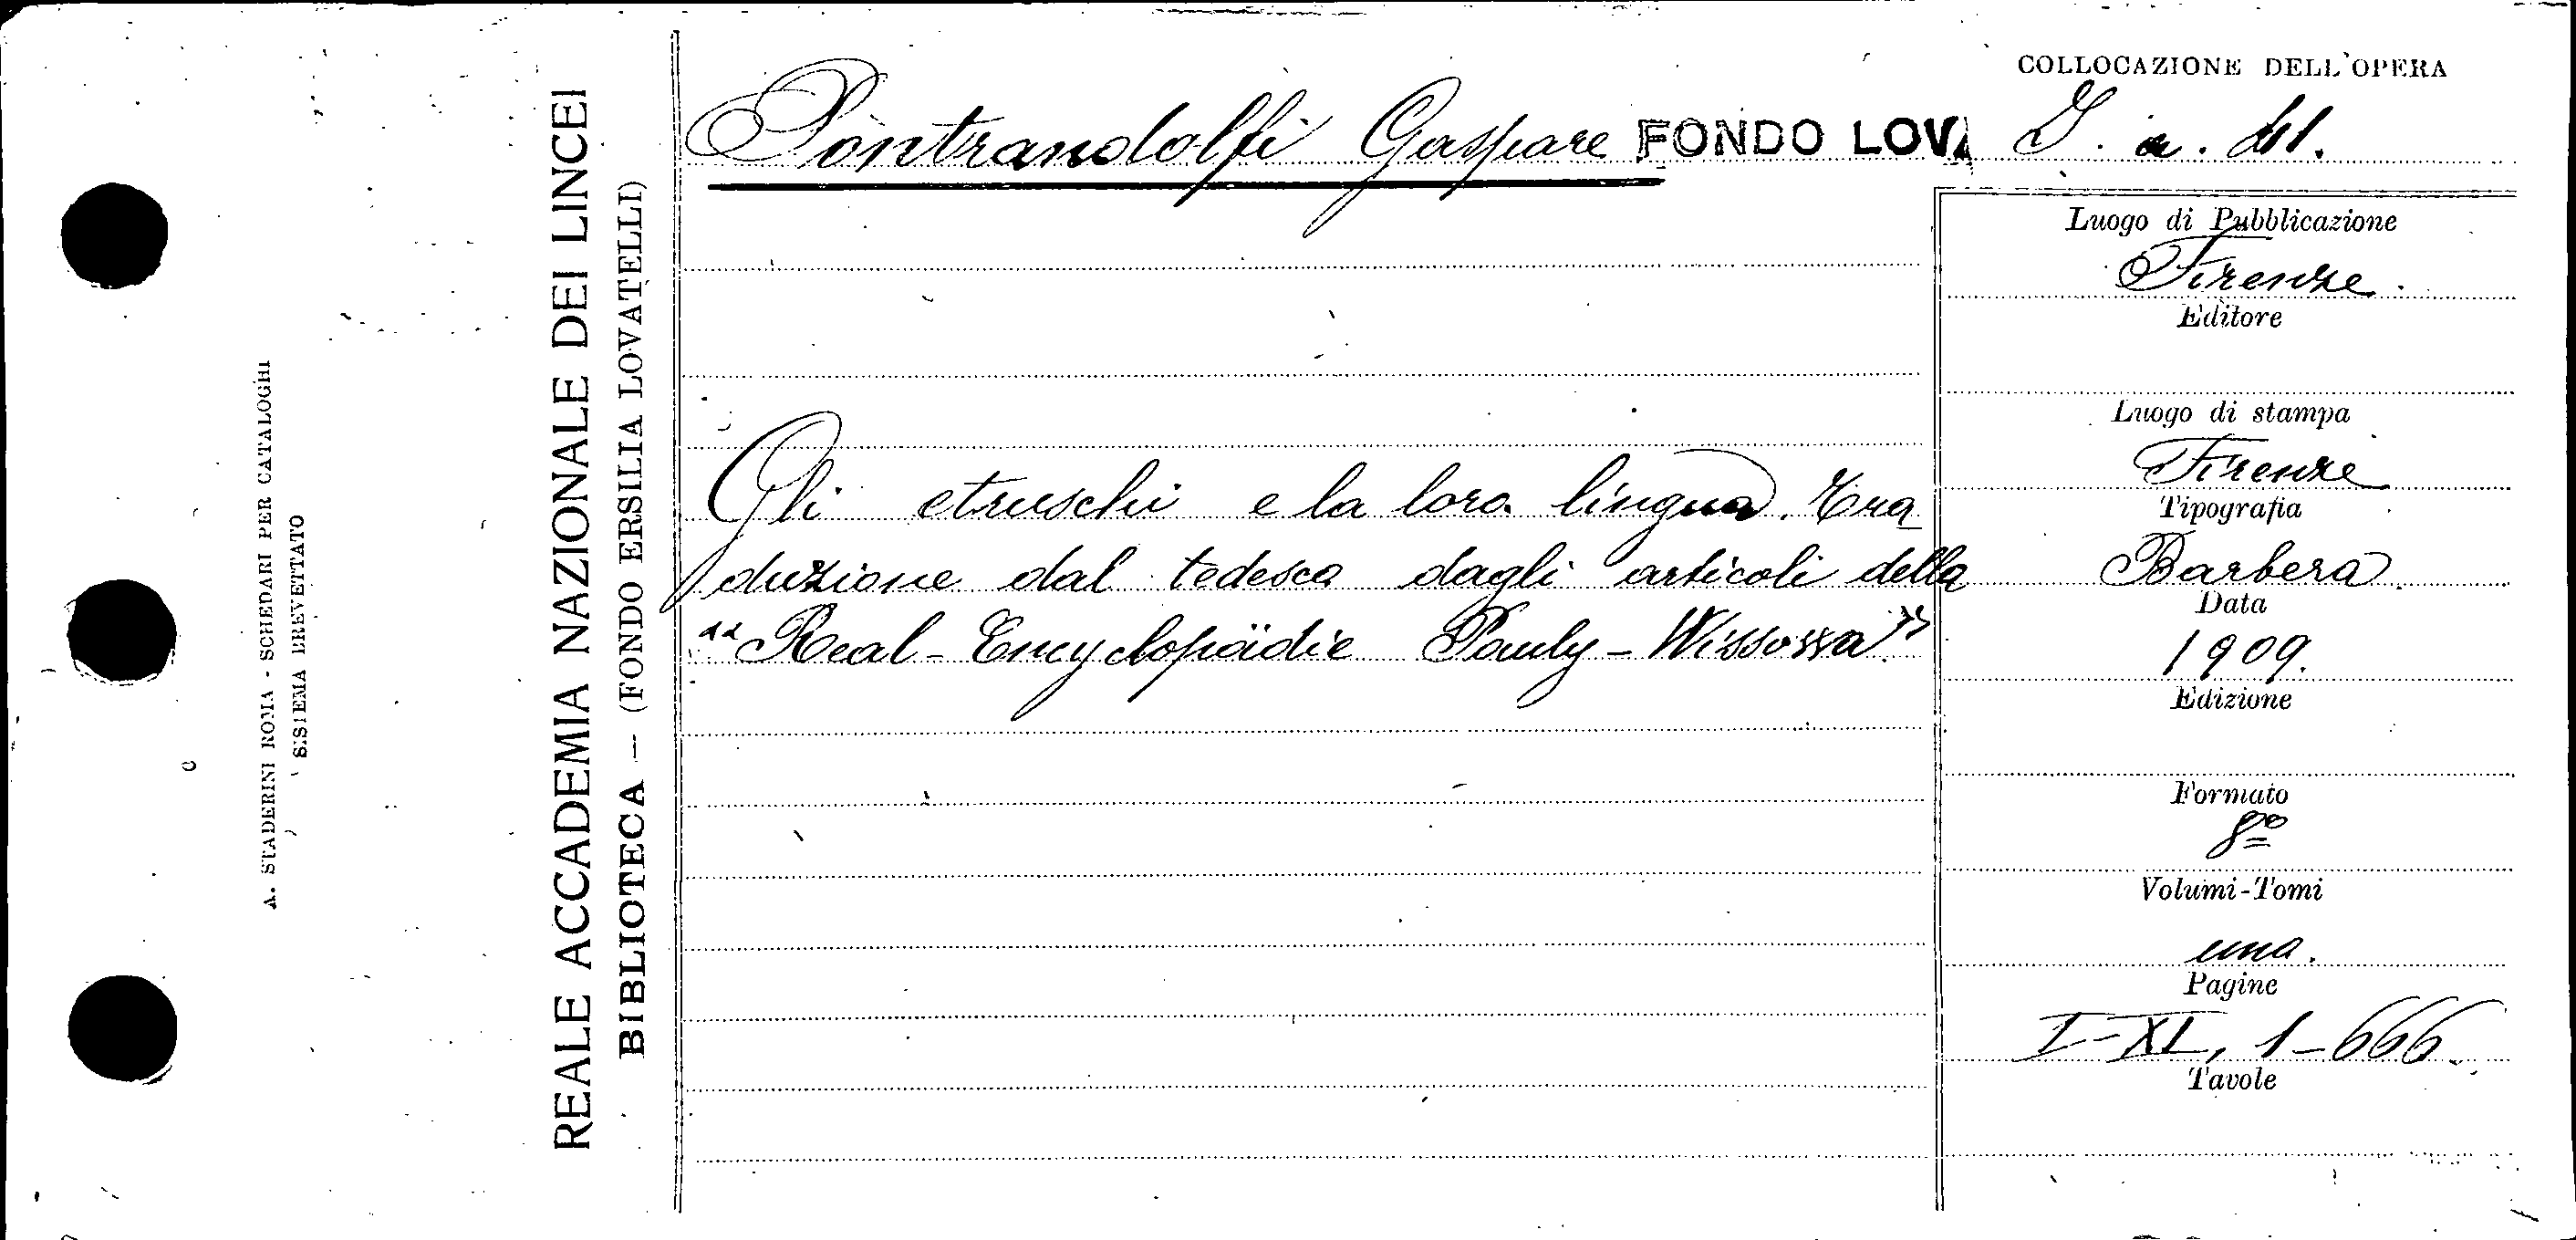 COLLOCAZIONE DELL'OPERA
Pontrandolfi Gaspare FONDO LOVA
Luogo di Pubblicazione
Firenze.
Editore
Luogo di stampa
Firenze
Tipografia
Barbera
Data
1909.
Edizione
Formato
8º
Volumi-Tomi
uno.
Pagine
I-XI, 1-666.
Tavole
Gli etruschi e la loro lingua. Tra
duzione dal tedesco dagli articoli della
"Real-Encyclopädie Pauly-Wissowa"
REALE ACCADEMIA NAZIONALE DEI LINCEI
BIBLIOTECA — (FONDO ERSILIA LOVATELLI)
A. STADERINI ROMA - SCHEDARI PER CATALOGHI
SISTEMA BREVETTATO